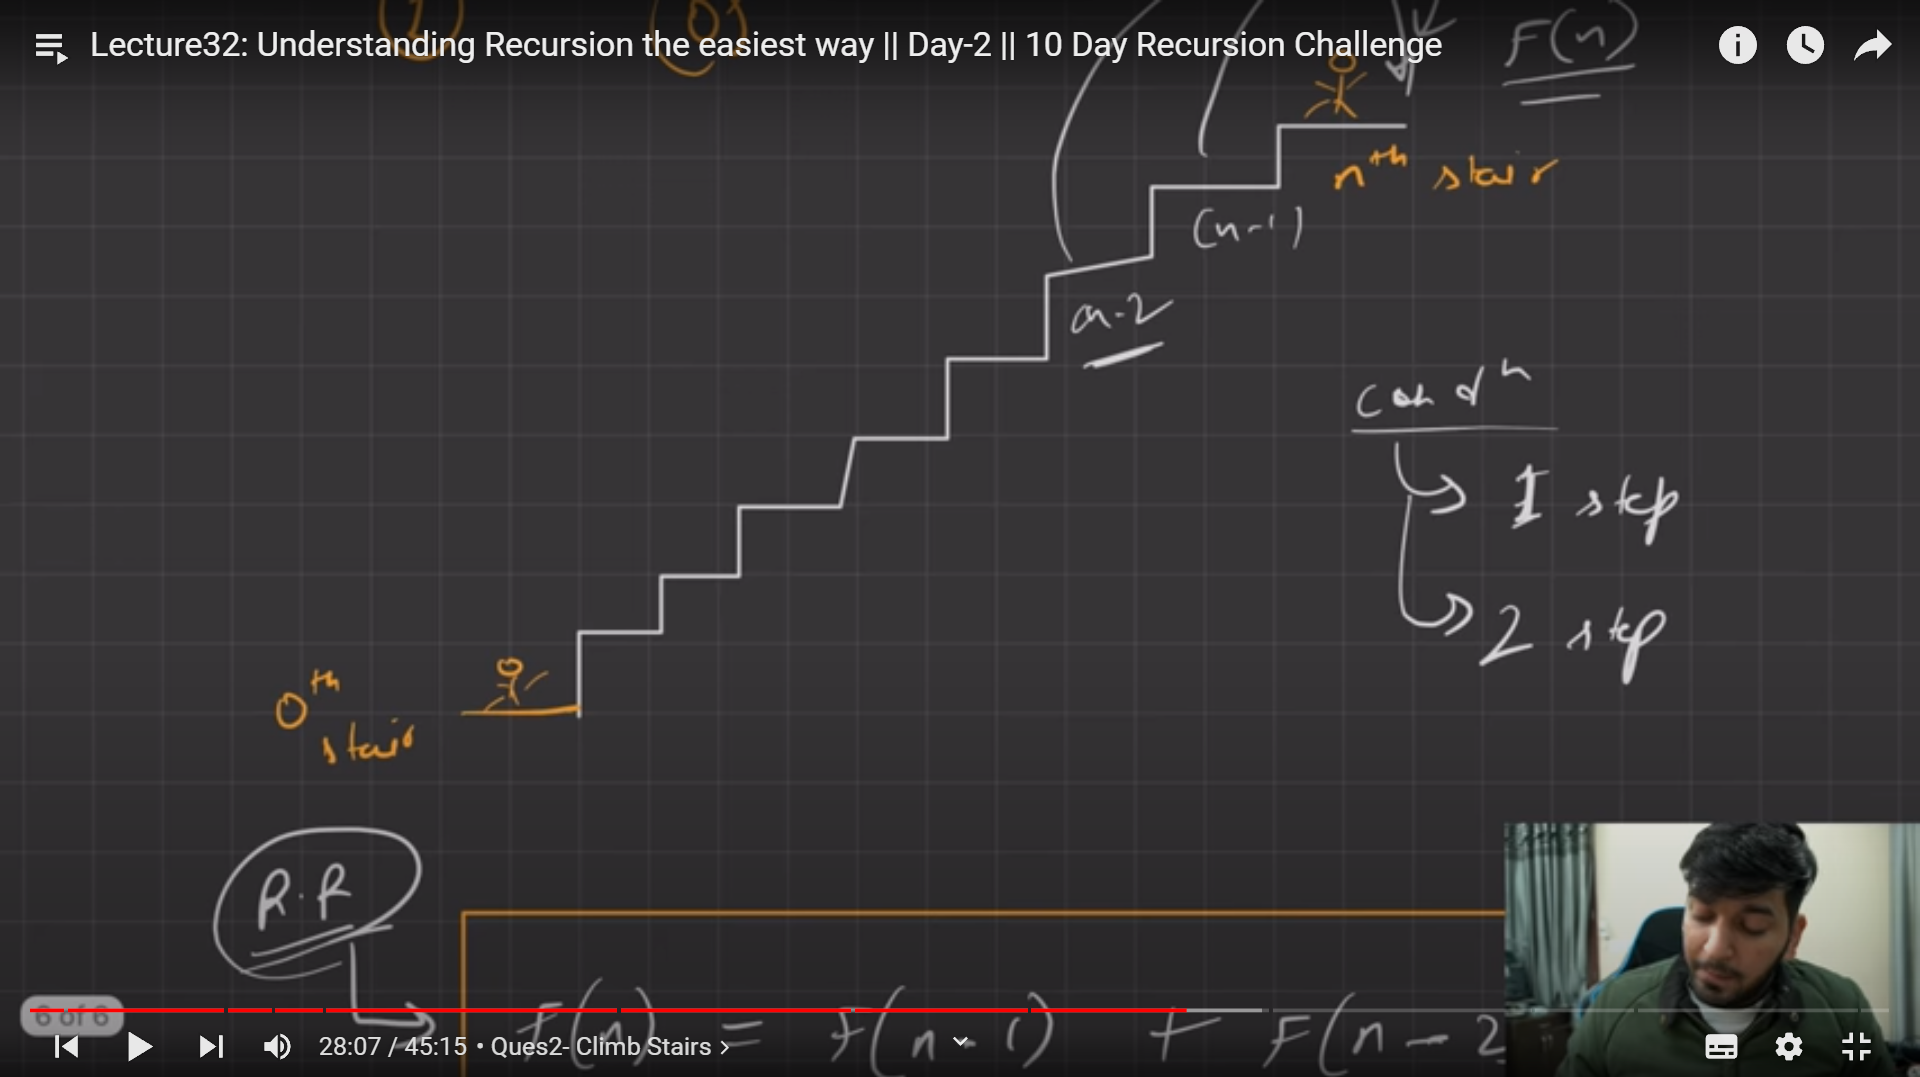 Lecture32: Understanding Recursion the easiest way || Day-2 || 10 Day Recursion Challenge
F(n)
nth stair
(n-1)
n-2
condn
1 step
2 step
0th
stair
R.R
F(n) = F(n-1) + F(n-2
6 of 6
28:07 / 45:15 • Ques2- Climb Stairs >